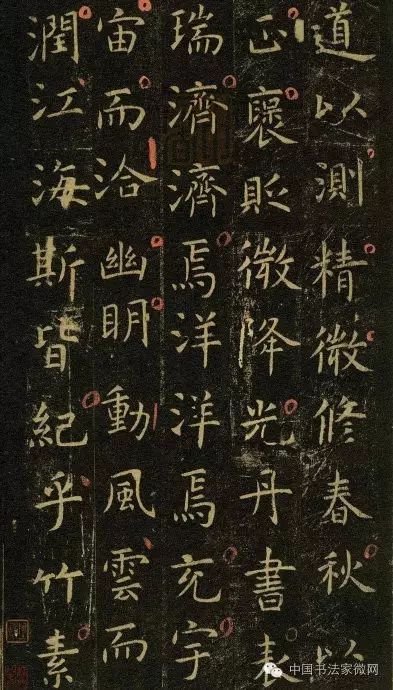 道以測精微修春秋以
正襃貶微降光丹書表
瑞濟濟焉洋洋焉充宇
宙而洽幽明動風雲而
潤江海斯皆紀乎竹素
中国书法家微网